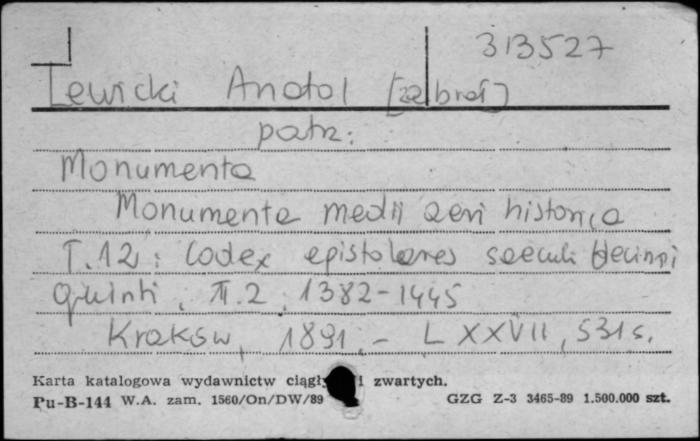 313527
Lewicki Anatol [zebrał]
patrz:
Monumenta
Monumenta medii aevi historica
T.12: Codex epistolares saeculi Decimi
Quinti, T.2, 1382-1445
Kraków, 1891.- LXXVII, 531 s.
Karta katalogowa wydawnictw ciągły i zwartych.
Pu-B-144 W.A. zam. 1560/On/DW/89 GZG Z-3 3465-89 1.500.000 szt.